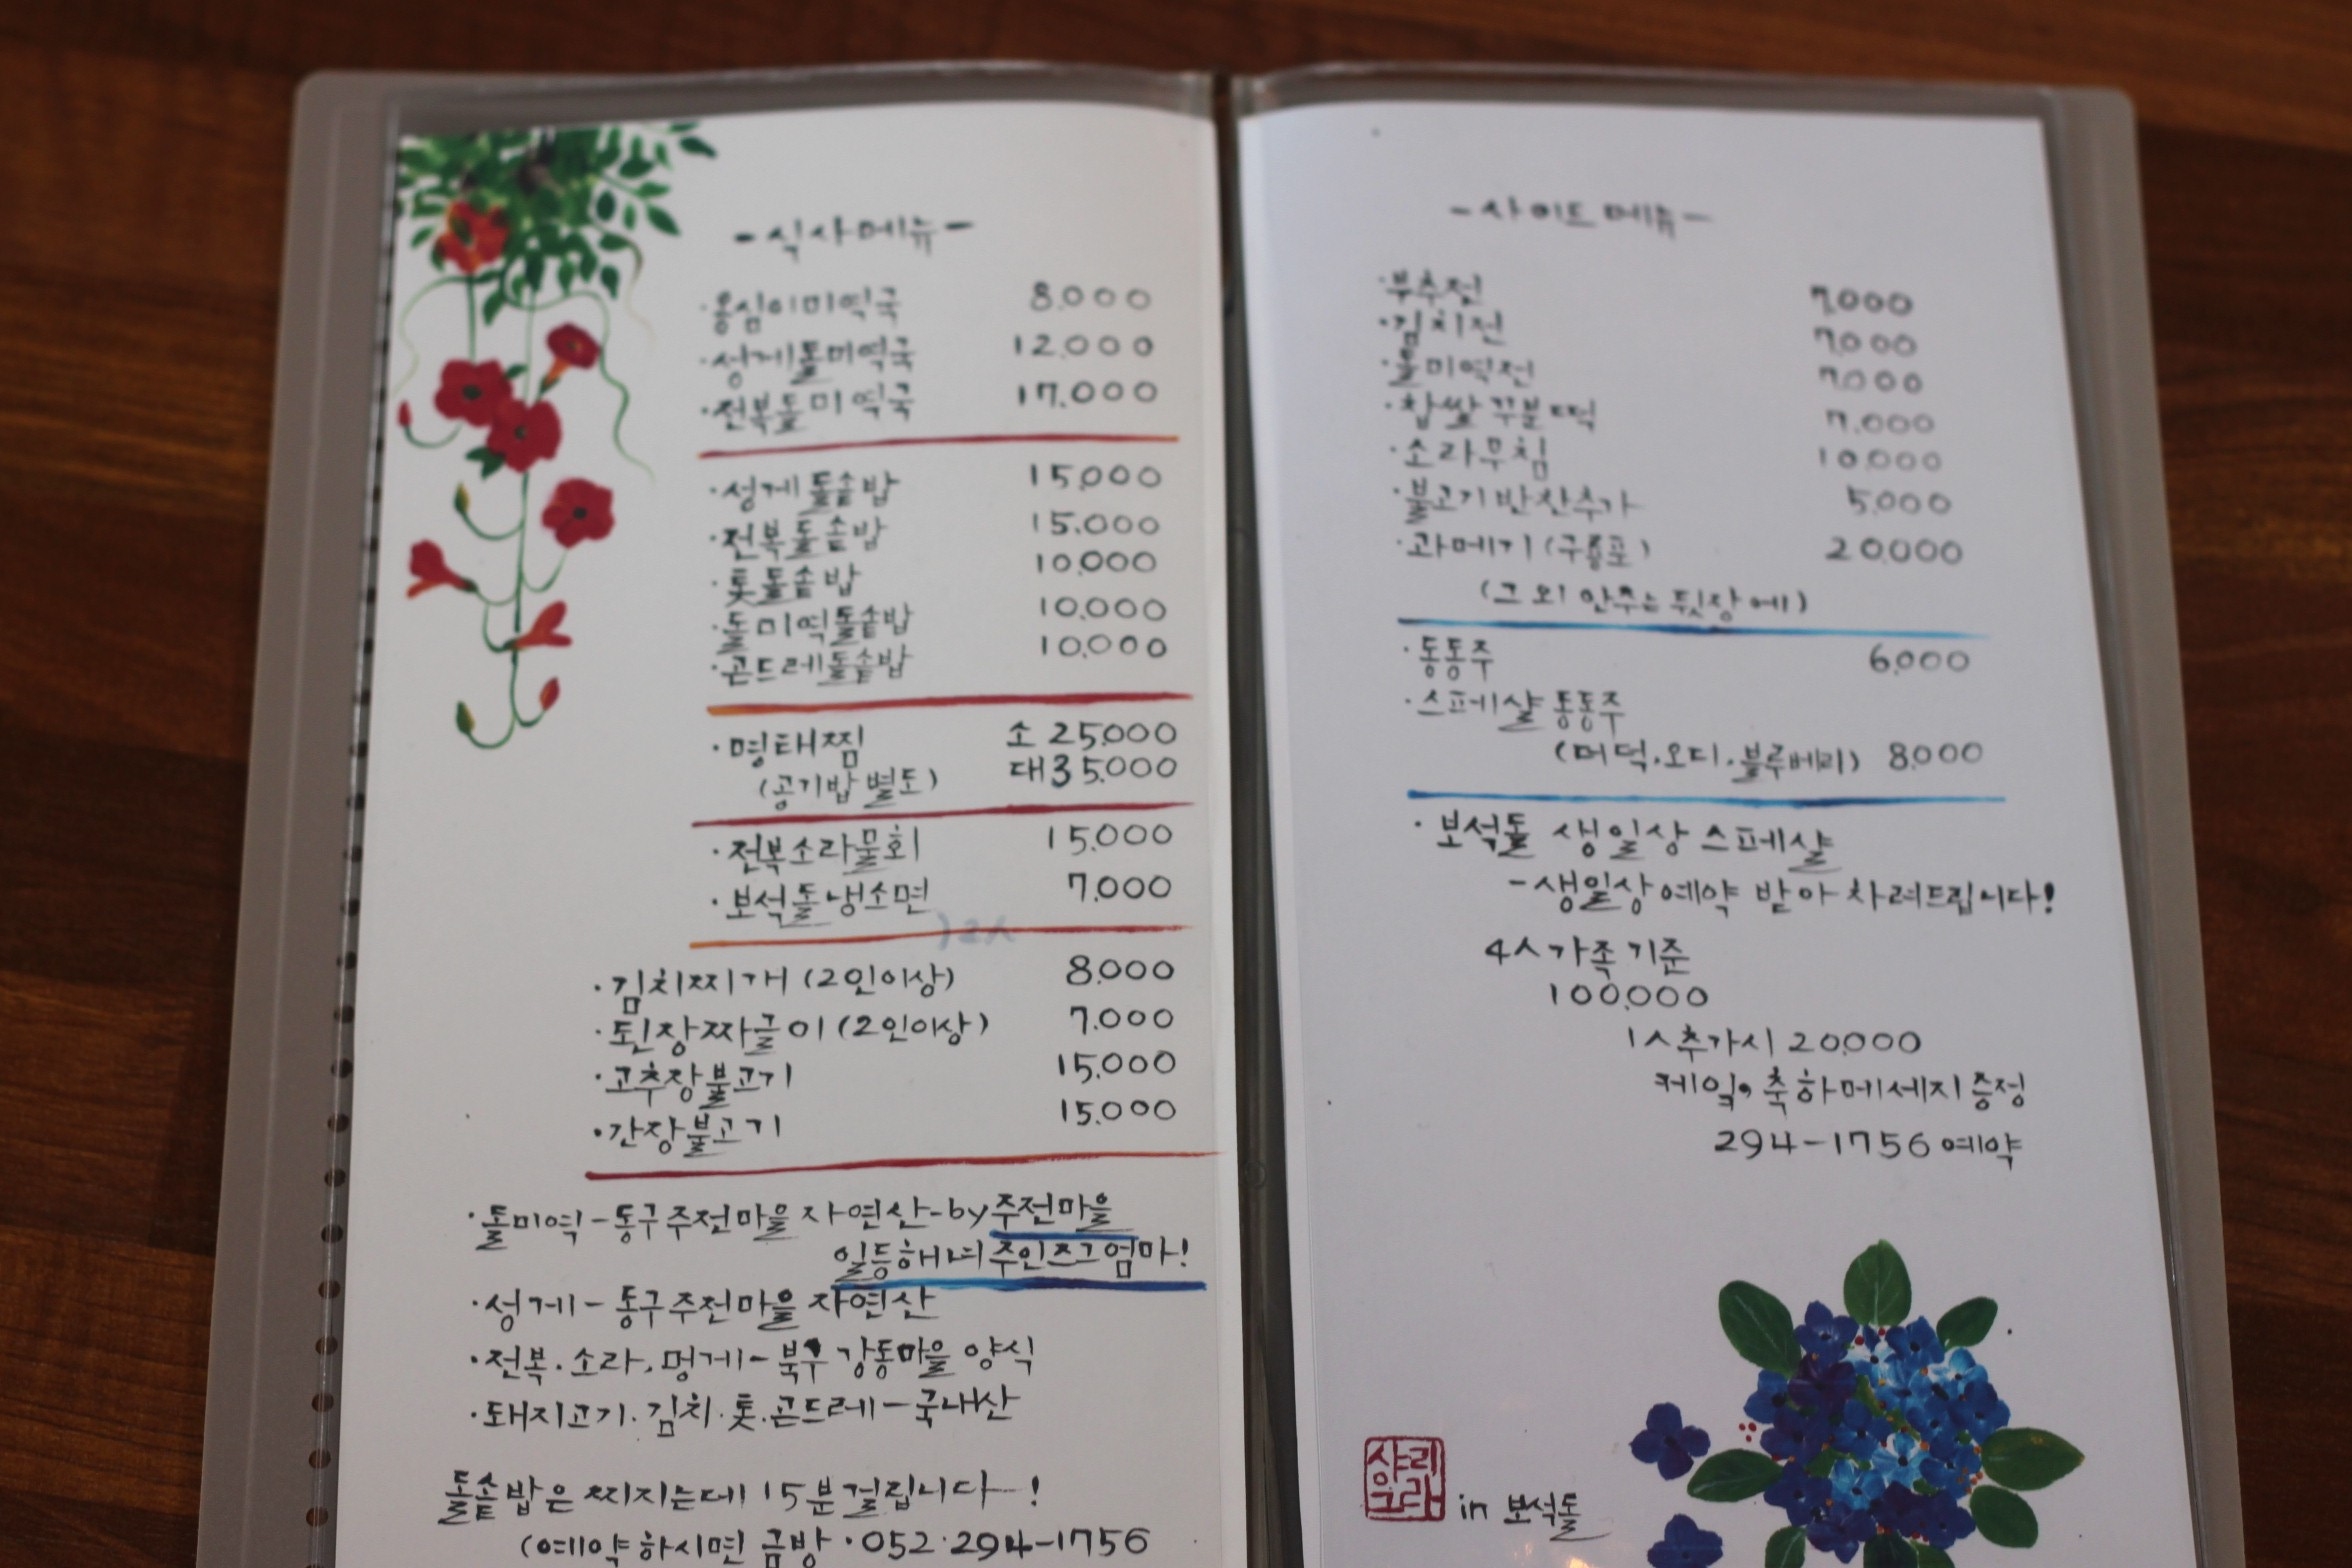 -식사메뉴-
·옹심이미역국 8.000
·성게돌미역국 12.000
·전복돌미역국 17.000
·성게돌솥밥 15.000
·전복돌솥밥 15.000
·톳돌솥밥 10.000
·돌미역돌솥밥 10.000
·곤드레돌솥밥 10.000
·명태찜 소 25.000
(공기밥 별도) 대 35.000
·전복소라물회 15.000
·보석돌냉소면 7.000
·김치찌개 (2인이상) 8.000
·된장짜글이 (2인이상) 7.000
·고추장불고기 15.000
·간장불고기 15.000
·돌미역-동구주전마을 자연산-by주전마을
일등해녀 주인쯔그엄마!
·성게-동구주전마을 자연산
·전복.소라.멍게-북구 강동마을 양식
·돼지고기.김치.톳.곤드레-국내산
돌솥밥은 찌지는데 15분 걸립니다-!
(예약하시면 금방·052·294-1756
-사이드메뉴-
·부추전 7.000
·김치전 7.000
·돌미역전 7.000
·찹쌀구불떡 7.000
·소라무침 10.000
·불고기반찬추가 5.000
·과메기(구룡포) 20.000
(그 외 안주는 뒷장에)
·동동주 6.000
·스페샬동동주
(더덕.오디.블루베리) 8.000
·보석돌 생일상 스페샬
-생일상예약 받아 차려드립니다!
4人가족기준
100.000
1人추가시 20.000
케잌, 축하메세지 증정
294-1756 예약
in 보석돌